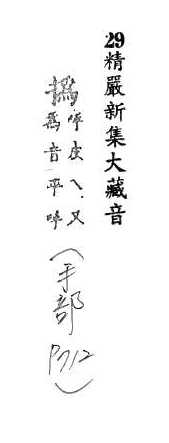 29精嚴新集大藏音
撝
呼皮乀又
爲音平呼
(手部 P712)